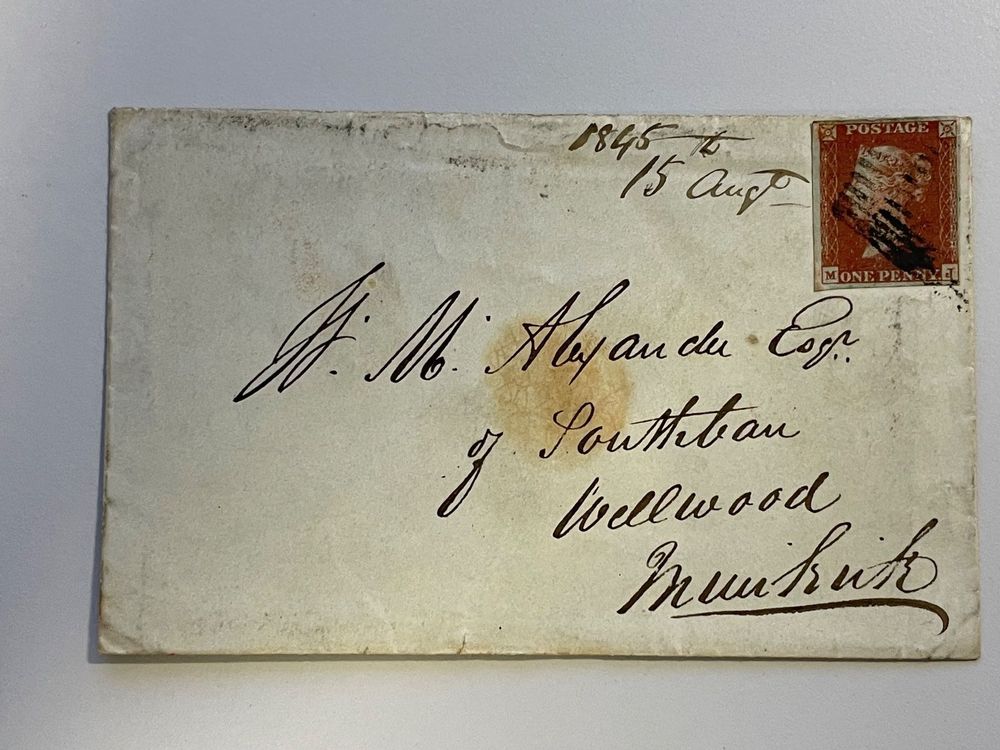 1845
15th Augt
POSTAGE
M ONE PENNY J
W. M. Alexander Esqr.
of Southbar
Wellwood
Muirkirk